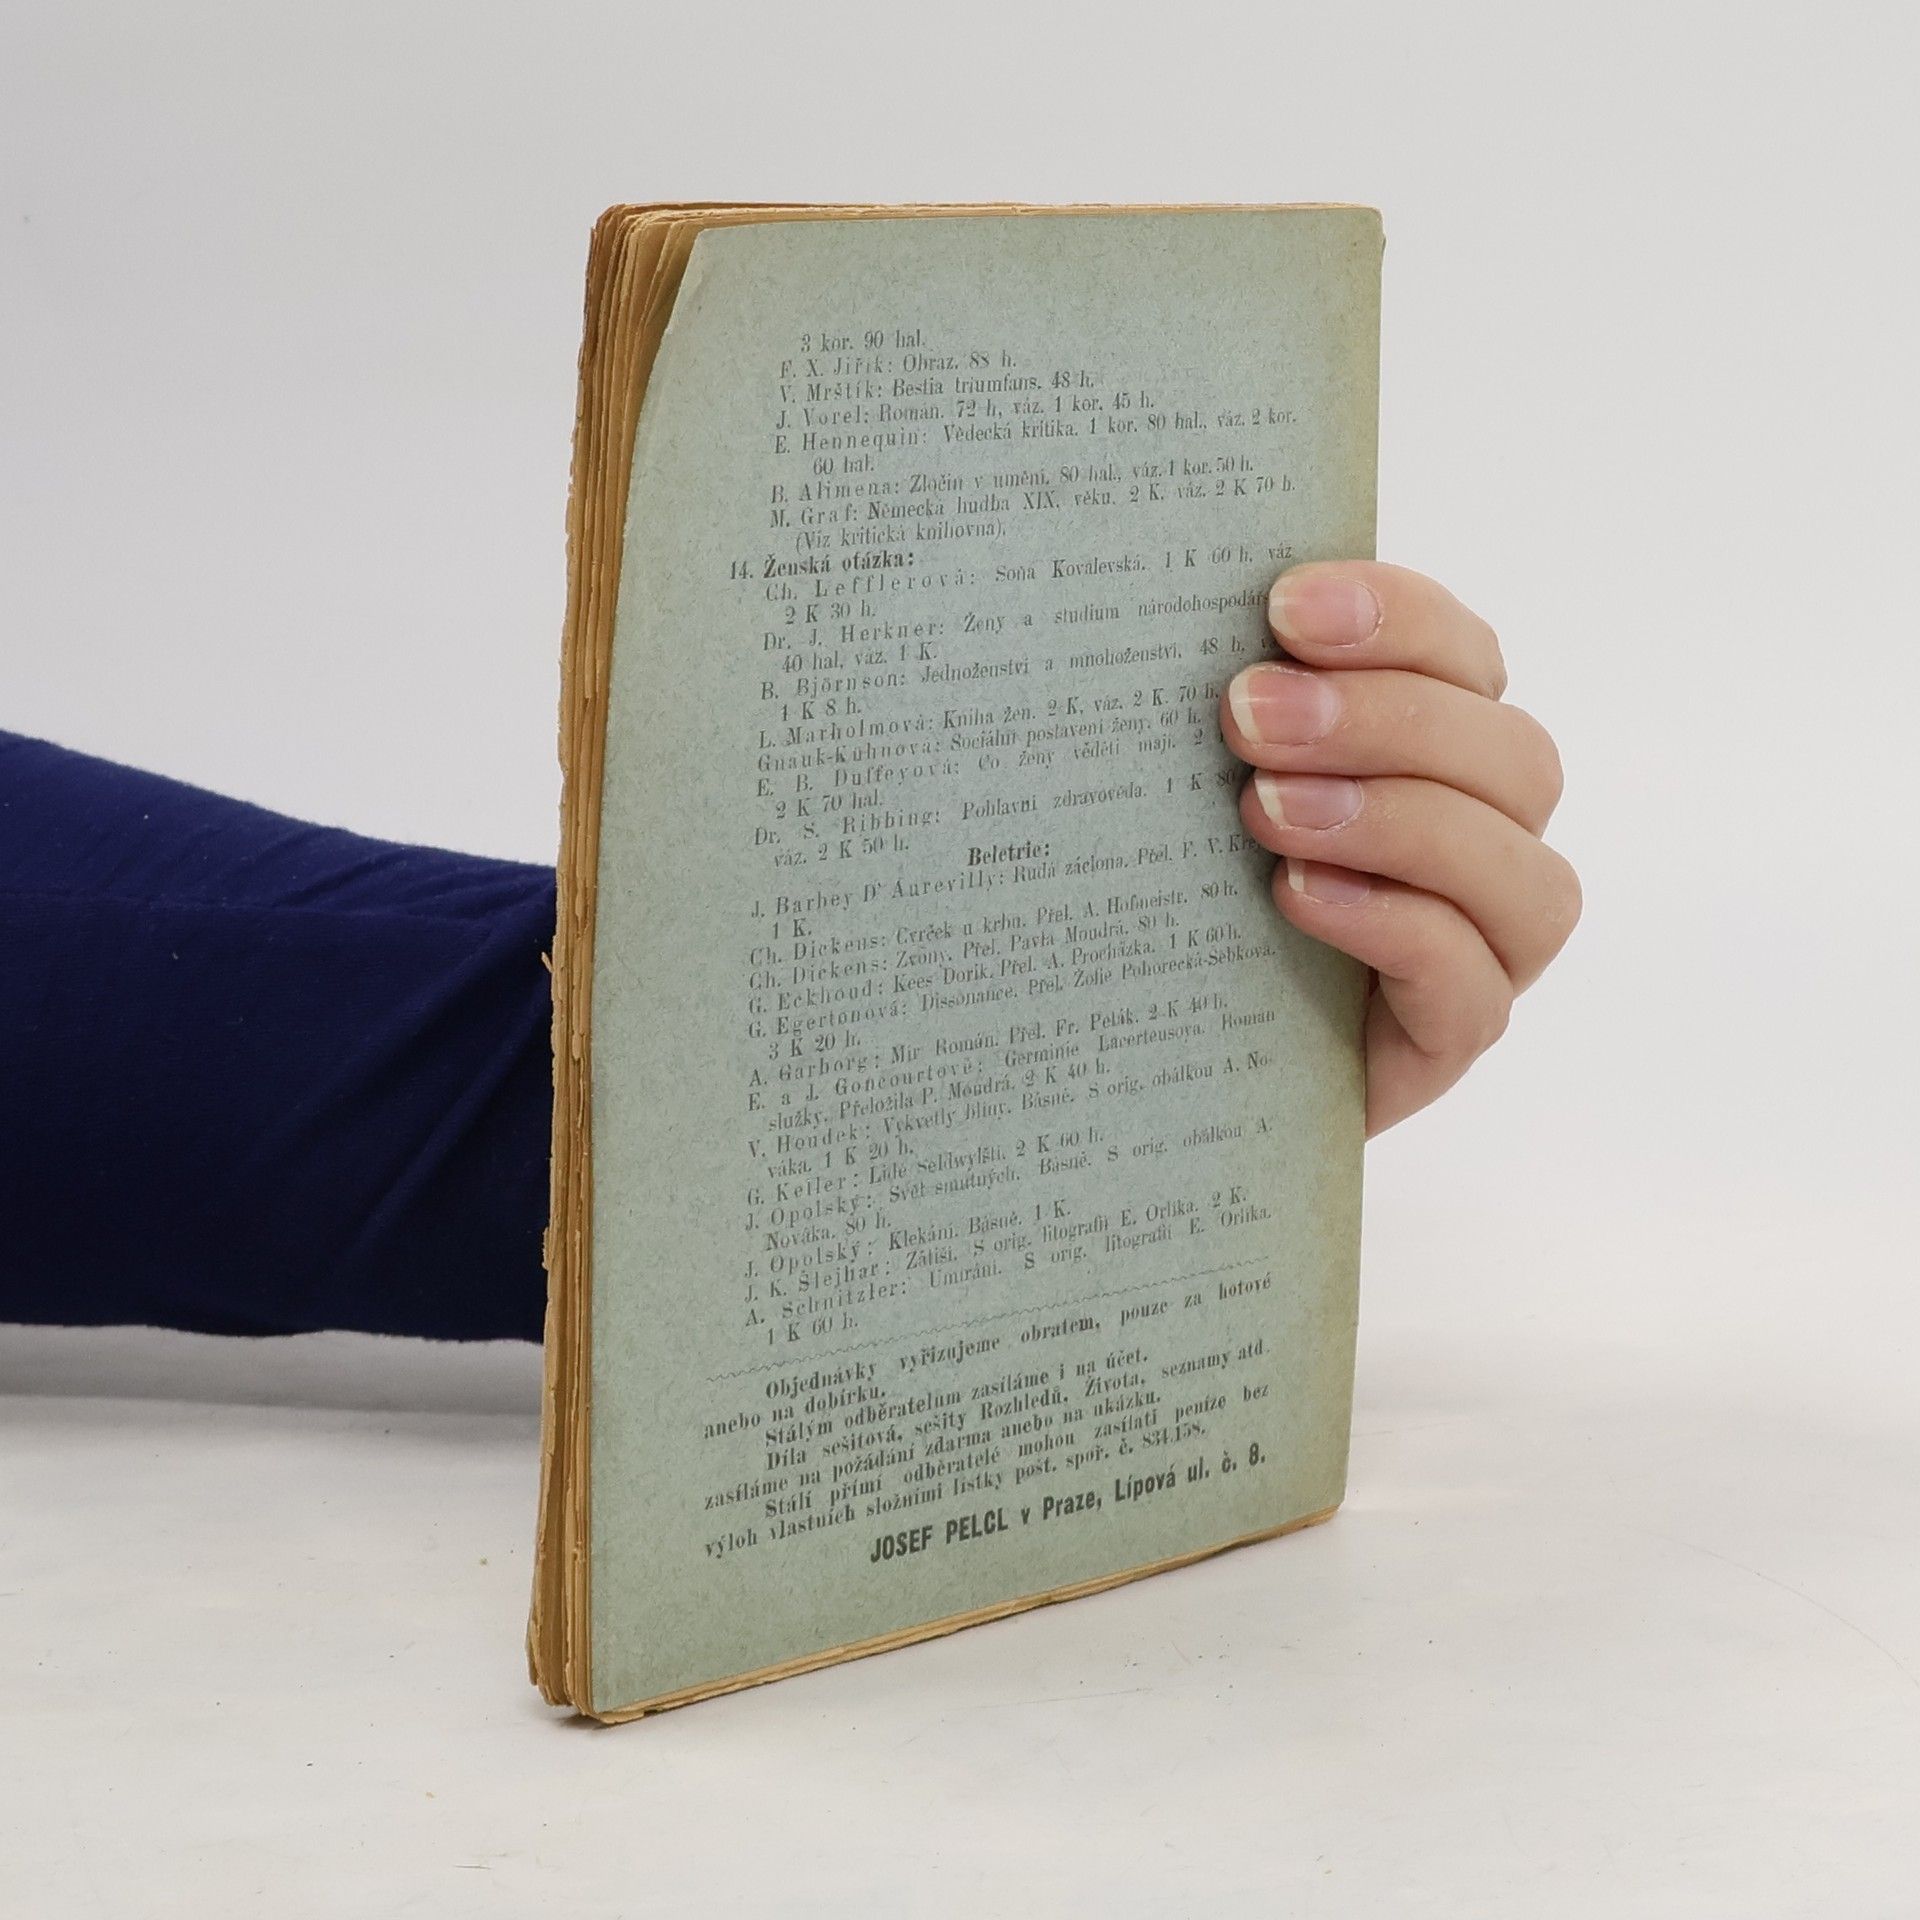 3 kor. 90 hal.
F. X. Jiřík: Obraz. 88 h.
V. Mrštík: Bestia triumfans. 48 h.
J. Vorel: Román. 72 h, váz. 1 kor. 45 h.
E. Hennequin: Vědecká kritika. 1 kor. 80 hal., váz. 2 kor.
60 hal.
B. Alimena: Zločin v umění. 80 hal., váz. 1 kor. 50 h.
M. Graf: Německá hudba XIX. věku. 2 K, váz. 2 K 70 h.
(Viz kritická knihovna).
14. Ženská otázka:
Ch. Lefflerová: Soňa Kovalevská. 1 K 60 h. váz
2 K 30 h.
Dr. J. Herkner: Ženy a studium národohospodářs
40 hal, váz. 1 K.
B. Björnson: Jednoženství a mnohoženství. 48 h. v
1 K 8 h.
L. Marholmová: Kniha žen. 2 K, váz. 2 K. 70 h.
Gnauk-Kühnova: Sociální postavení ženy. 60 h.
E. B. Duffeyová: Co ženy věděti mají. 2
2 K 70 hal.
Dr. S. Ribbing: Pohlavní zdravověda. 1 K 80
váz. 2 K 50 h.
Beletrie:
J. Barbey D' Aurevilly: Rudá záclona. Přel. F. V. Krej
1 K.
Ch. Dickens: Cvrček u krbu. Přel. A. Hofmeistr. 80 h.
Ch. Dickens: Zvony. Přel. Pavla Moudrá. 80 h.
G. Eckhoud: Kees Dorik. Přel. A. Procházka. 1 K 60 h.
G. Egertonová: Dissonance. Přel. Žofie Pohorecká-Šebková.
3 K 20 h.
A. Garborg: Mír Román. Přel. Fr. Pelák. 2 K 40 h.
E. a J. Goncourtové: Germinie Lacerteusova. Román
služky. Přeložila P. Moudrá. 2 K 40 h.
V. Houdek: Vykvetly blíny. Básně. S orig. obálkou A. No-
váka. 1 K 20 h.
G. Keller: Lidé Seldwylští. 2 K 60 h.
J. Opolský: Svět smutných. Básně. S orig. obálkou A.
Nováka. 80 h.
J. Opolský: Klekání. Básně. 1 K.
J. K. Šlejhar: Zátiší. S orig. litografií E. Orlíka. 2 K.
A. Schnitzler: Umírání. S orig. litografií E. Orlíka.
1 K 60 h.
Objednávky vyřizujeme obratem, pouze za hotové
anebo na dobírku.
Stálým odběratelům zasíláme i na účet.
Díla sešitová, sešity Rozhledů, Života, seznamy atd.
zasíláme na požádání zdarma anebo na ukázku.
Stálí přímí odběratelé mohou zasílati peníze bez
výloh vlastních složními lístky pošt. spoř. č. 834.158.
JOSEF PELCL v Praze, Lípová ul. č. 8.